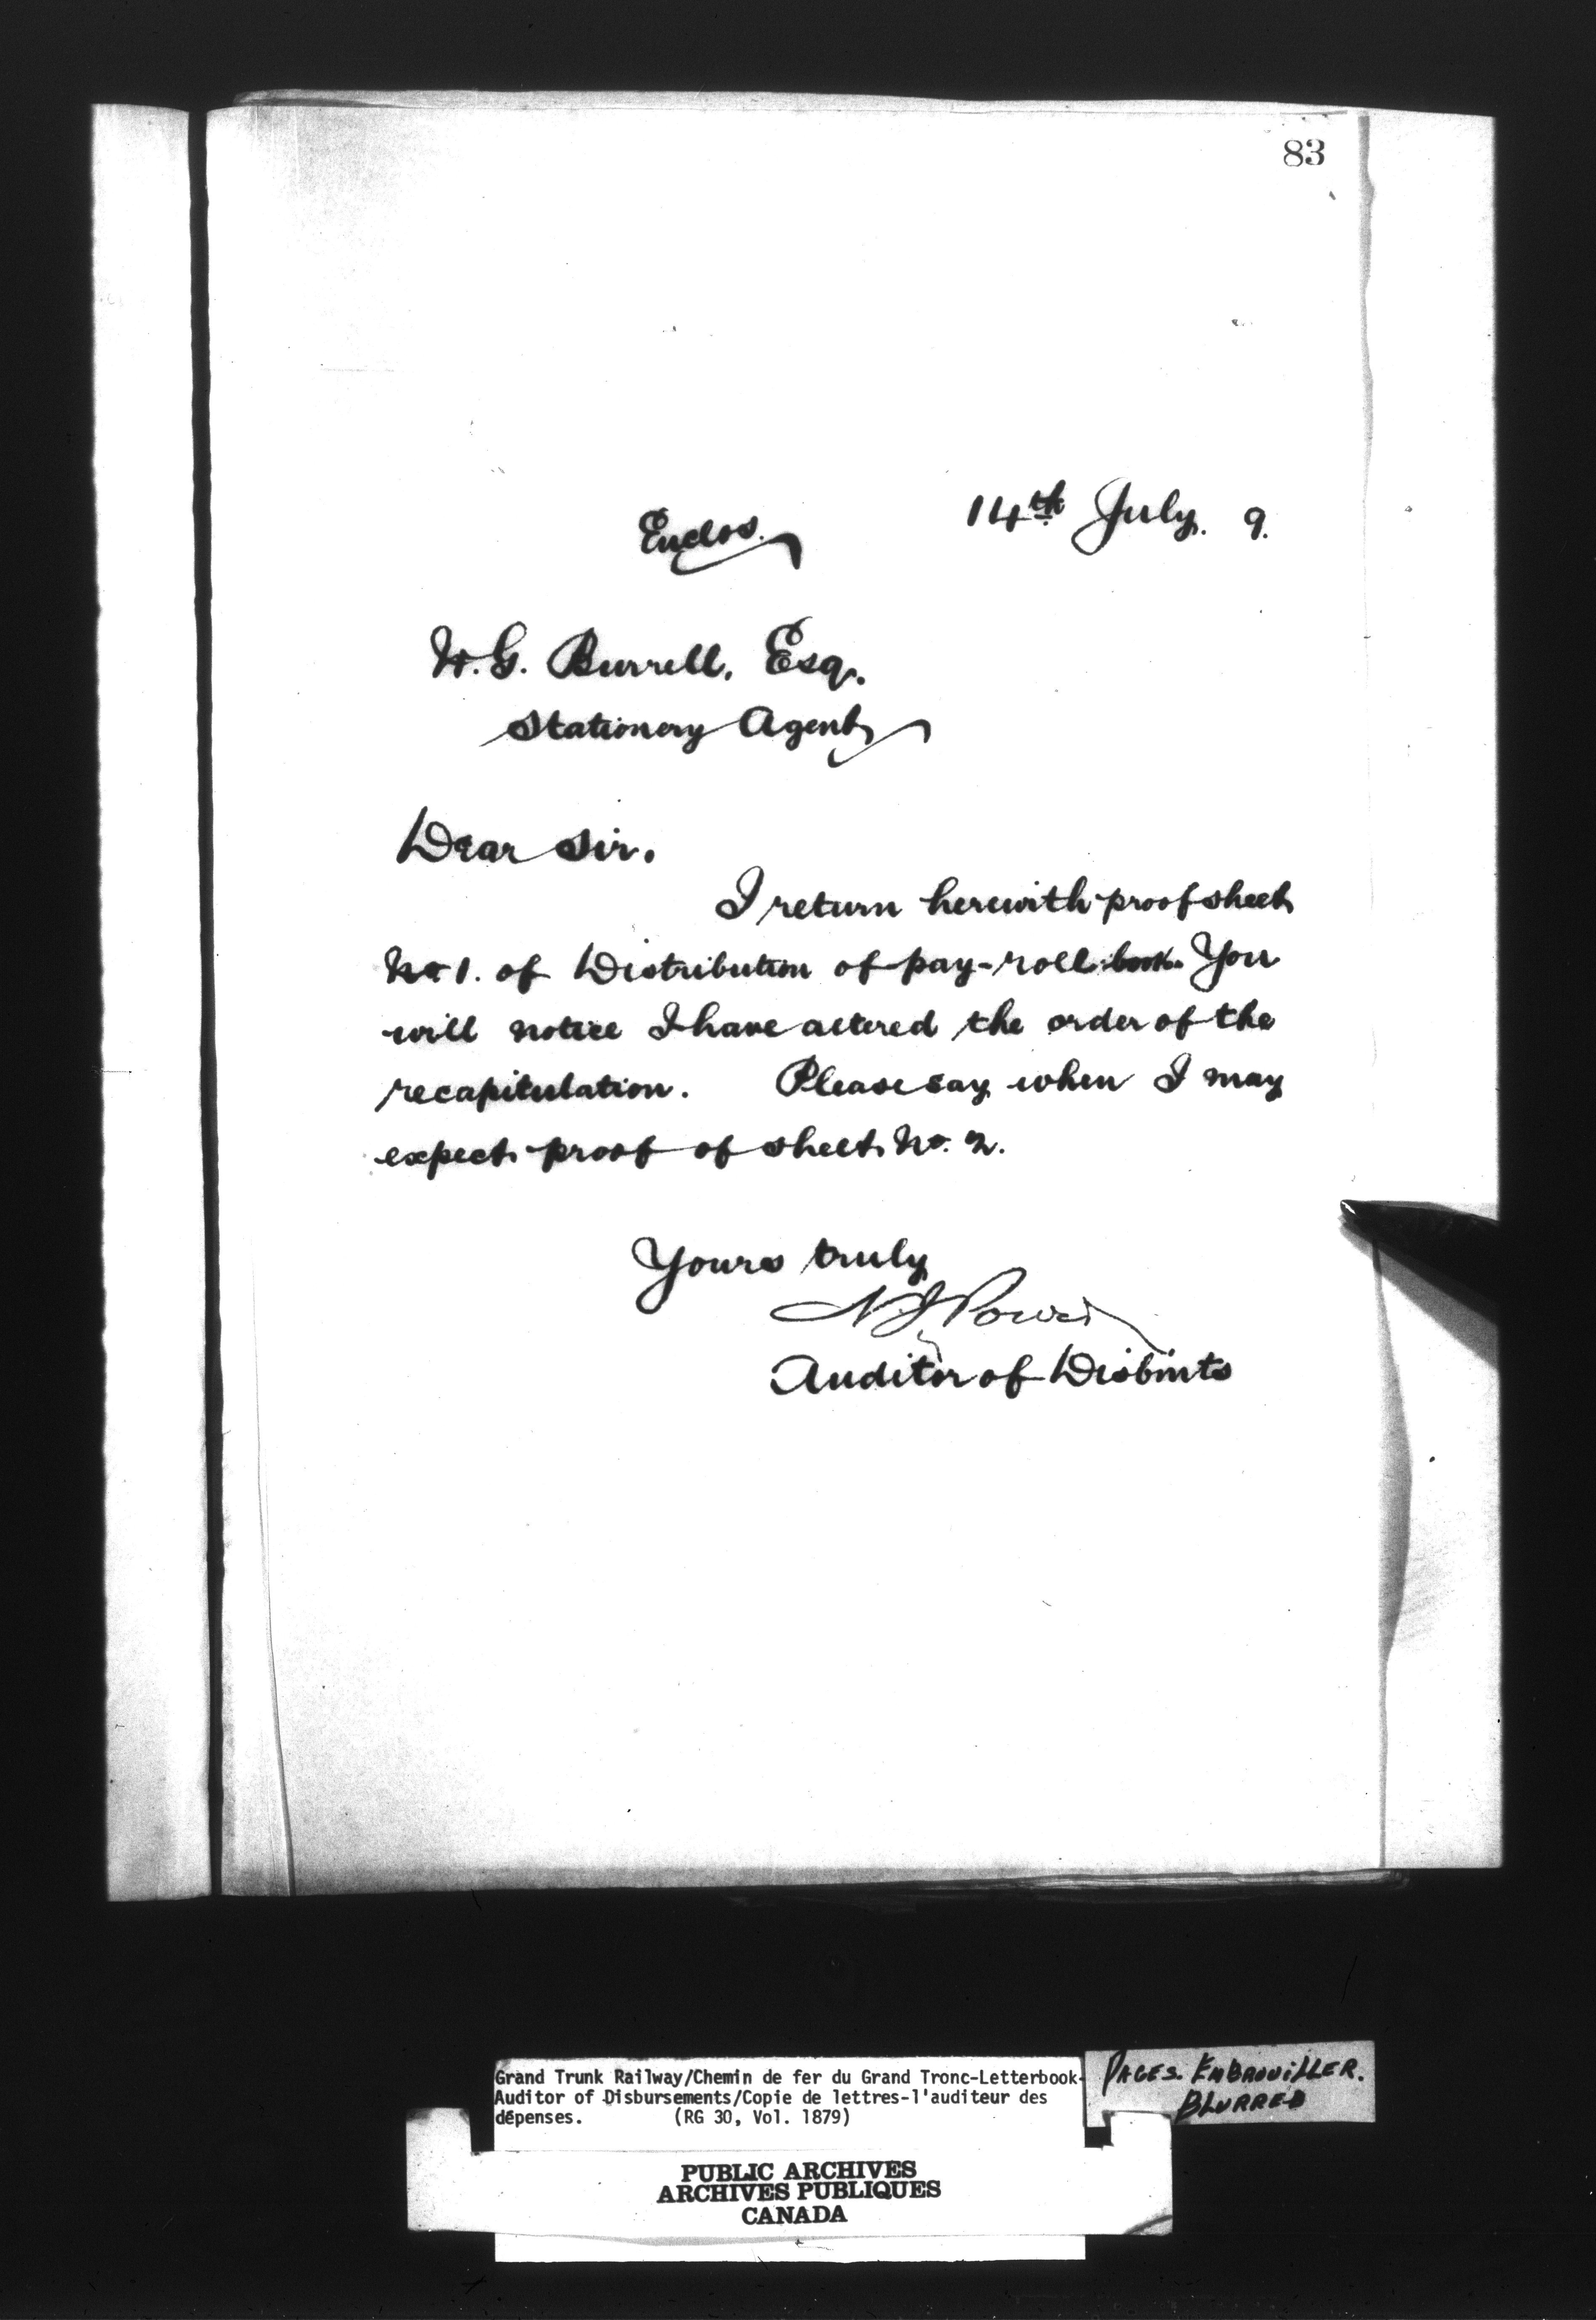 83
14th July. 9.
Enclos.
W. G. Burrell, Esq.
Stationery Agent
Dear Sir.
I return herewith proof sheet
No. 1. of Distribution of pay-roll book. You
will notice I have altered the order of the
recapitulation. Please say when I may
expect proof of sheet No. 2.
Yours truly
N J Power
Auditor of Disbmts
Grand Trunk Railway/Chemin de fer du Grand Tronc-Letterbook-
Auditor of Disbursements/Copie de lettres-l'auditeur des
dépenses. (RG 30, Vol. 1879)
PAGES. EMBROUILLER.
BLURRED
PUBLIC ARCHIVES
ARCHIVES PUBLIQUES
CANADA